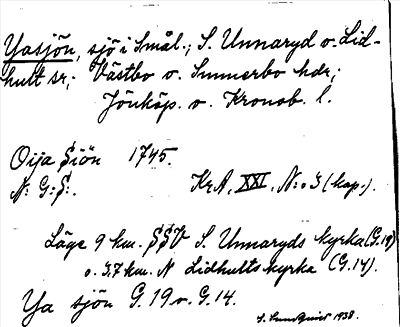 Yasjön, sjö i Smål.; S. Unnaryd o. Lid-
hult sr; Västbo o. Sunnerbo hdr;
Jönköp. o. Kronob. l.
Oija Siön 1745.
N: G: S:. KrA, XXI, N:o 3 (kap.).
Läge 9 km. SSV S. Unnaryds kyrka (G.19)
o. 3.7 km. N Lidhults kyrka (G.14).
Ya sjön G.19 o. G.14.
S. 1938.